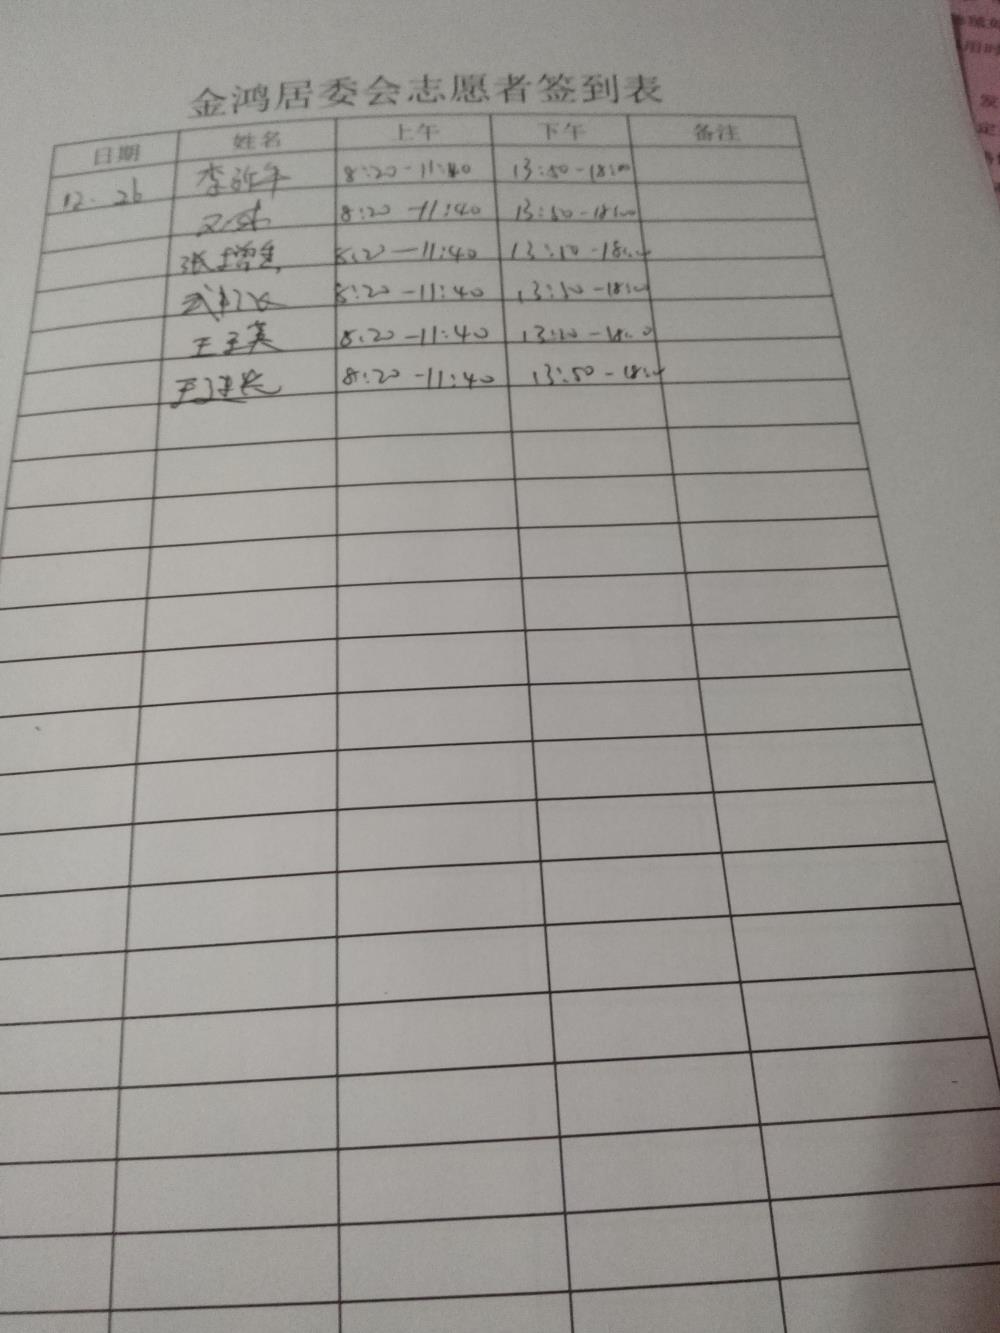 金鸿居委会志愿者签到表
日期 姓名 上午 下午 备注
12.26 李 8:20-11:40 13:50-18:00
8:20-11:40 13:50-18:00
张增 8:20-11:40 13:50-18:00
武 8:20-11:40 13:50-18:00
王玉英 8:20-11:40 13:50-18:00
王建 8:20-11:40 13:50-18:00
用时
发
定